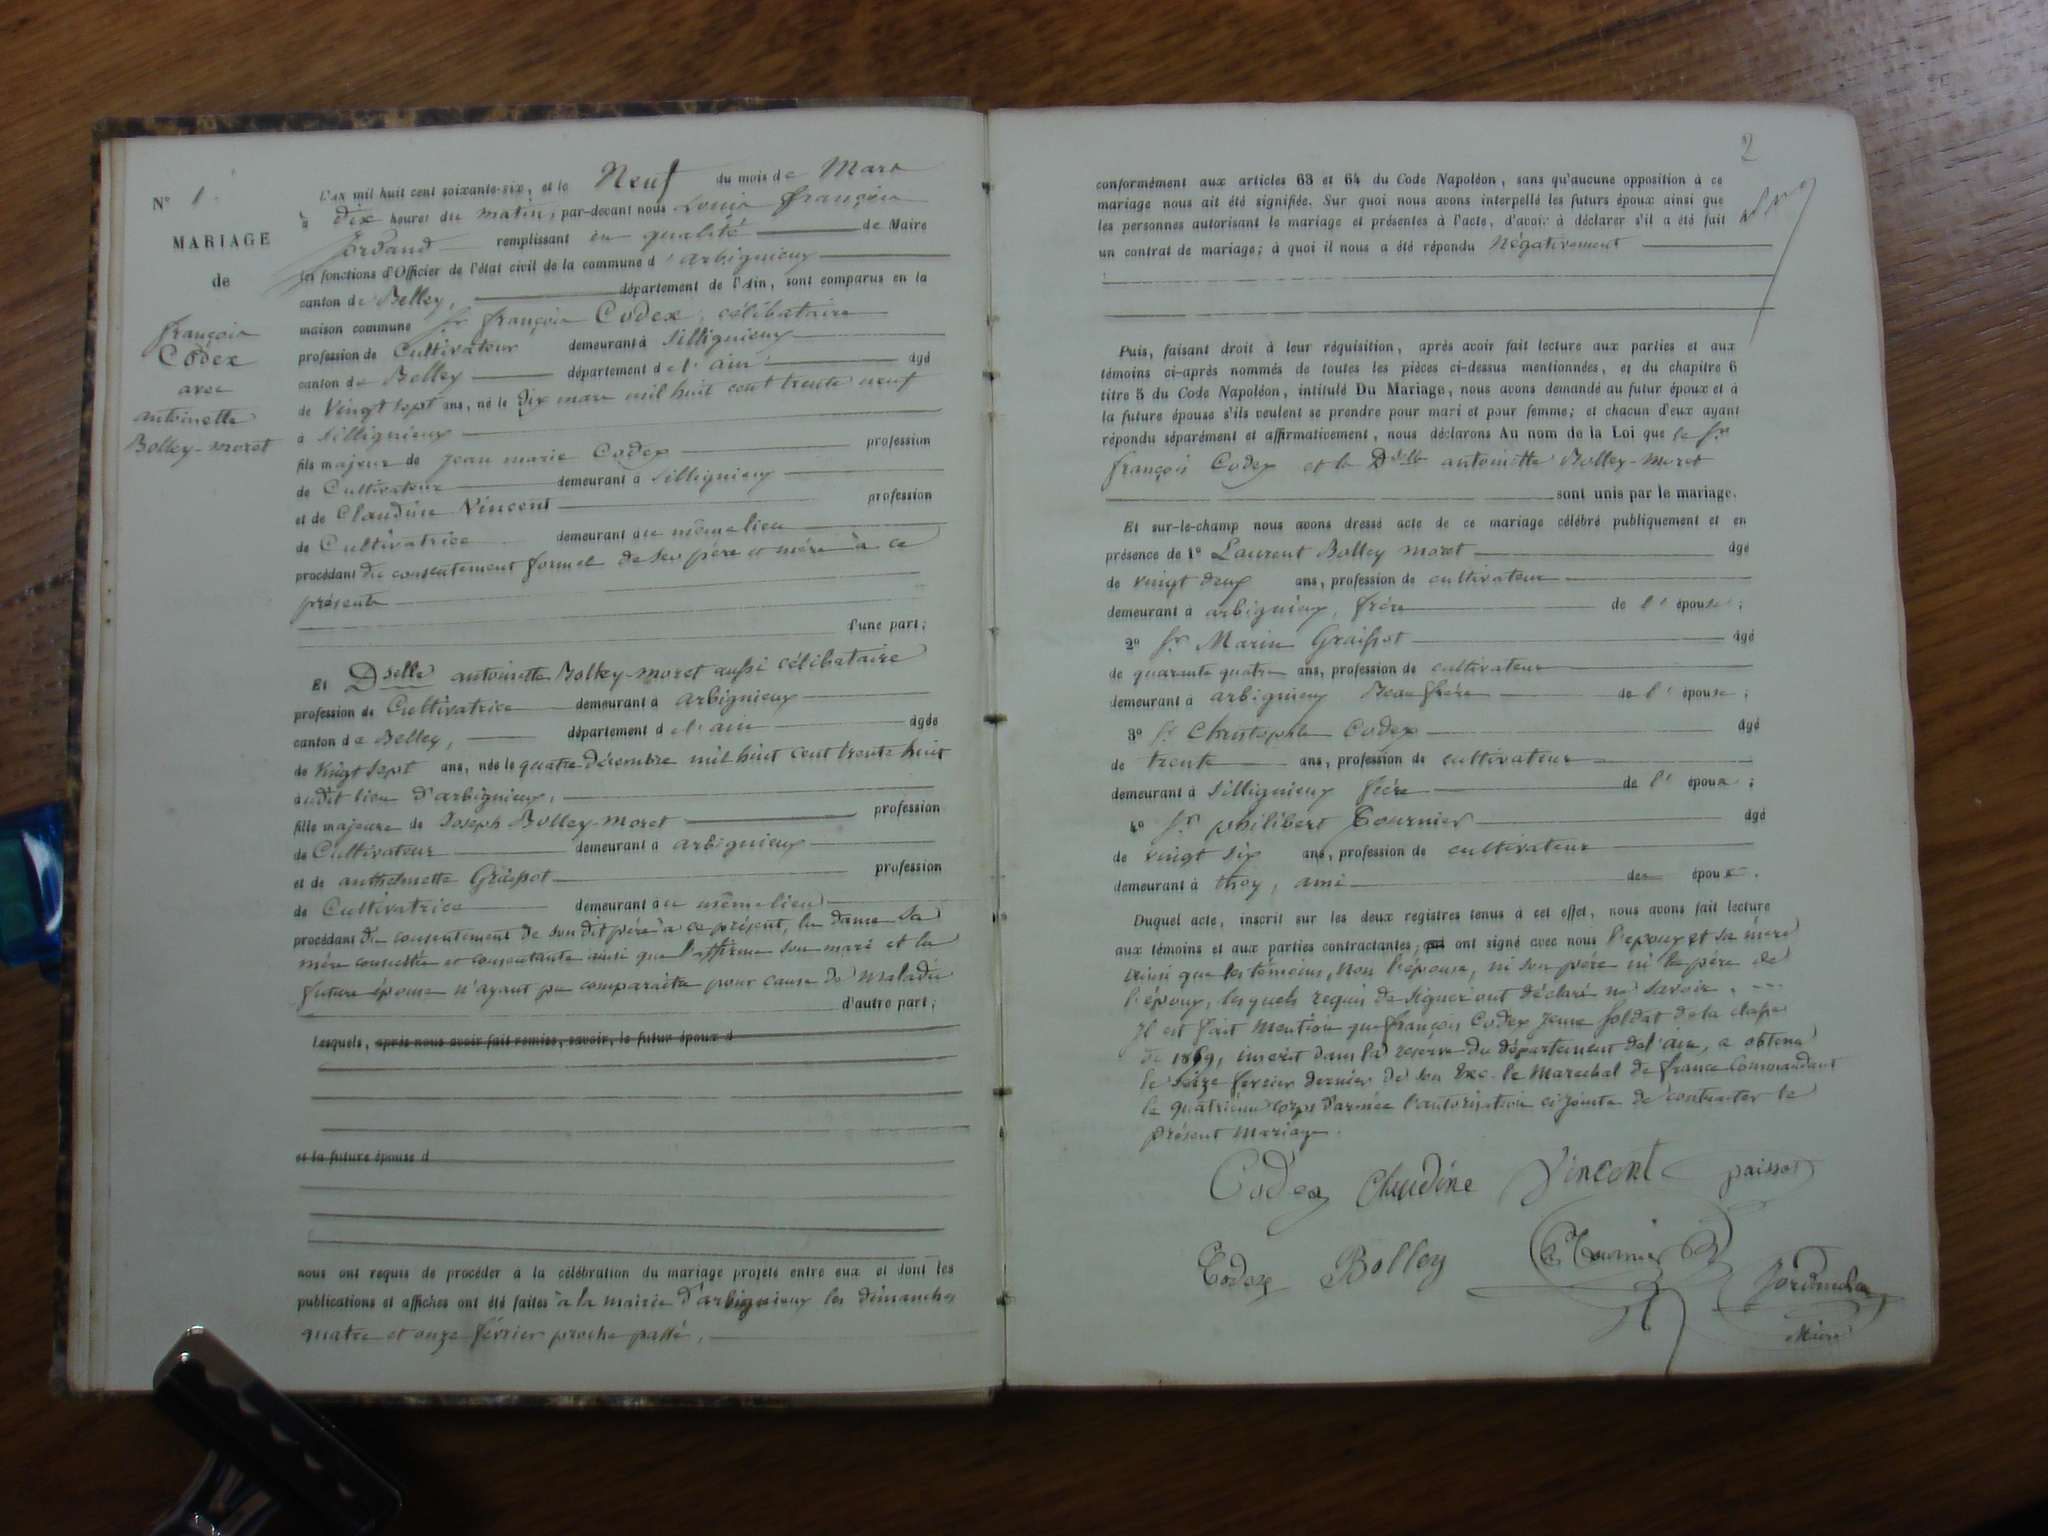 N° 1.
MARIAGE
de
françois
Codex
avec
antoinette
Bolley-moret
L'AN mil huit cent soixante-six, et le Neuf du mois de Mars
à dix heures du matin, par-devant nous Louis françois
Jordand remplissant en qualité de Maire
les fonctions d'Officier de l'état civil de la commune d'arbignieux
canton de Belley, département de l'Ain, sont comparus en la
maison commune Sr françois Codex, célibataire
profession de Cultivateur demeurant à Sillignieux
canton de Belley département de l'ain âgé
de vingt sept ans, né le dix mars mil huit cent trente neuf
à Sillignieux
fils majeur de jean marie Codex profession
de Cultivateur demeurant à Sillignieux
et de Claudine Vincent profession
de Cultivatrice demeurant au même lieu
procédant du consentement formel de ses père et mère à ce
présents
d'une part;
Et Dselle antoinette Bolley-moret aussi célibataire
profession de Cultivatrice demeurant à arbignieux
canton de Belley, département de l'ain âgée
de vingt sept ans, née le quatre décembre mil huit cent trente huit
audit lieu d'arbignieux,
fille majeure de Joseph Bolley-moret profession
de Cultivateur demeurant à arbignieux
et de anthelmette Graissot profession
de Cultivatrice demeurant au même lieu
procédant du consentement de son dit père à ce présent, la dame sa
mère consultée et consentante ainsi que l'affirme son mari et la
future épouse n'ayant pu comparaitre pour cause de maladie
d'autre part;
Lesquels, après nous avoir fait remise, savoir, le futur époux d
et la future épouse d
nous ont requis de procéder à la célébration du mariage projeté entre eux et dont les
publications et affiches ont été faites à la mairie d'arbignieux les dimanches
quatre et onze février proche passé.
2
conformément aux articles 63 et 64 du Code Napoléon, sans qu'aucune opposition à ce
mariage nous ait été signifiée. Sur quoi nous avons interpellé les futurs époux ainsi que
les personnes autorisant le mariage et présentes à l'acte, d'avoir à déclarer s'il a été fait
un contrat de mariage; à quoi il nous a été répondu Négativement
Puis, faisant droit à leur réquisition, après avoir fait lecture aux parties et aux
témoins ci-après nommés de toutes les pièces ci-dessus mentionnées, et du chapitre 6
titre 5 du Code Napoléon, intitulé Du Mariage, nous avons demandé au futur époux et à
la future épouse s'ils veulent se prendre pour mari et pour femme; et chacun d'eux ayant
répondu séparément et affirmativement, nous déclarons Au nom de la Loi que le Sr
françois Codex et la Dselle antoinette Bolley-moret
sont unis par le mariage.
Et sur-le-champ nous avons dressé acte de ce mariage célébré publiquement et en
présence de 1° Laurent Bolley moret âgé
de vingt deux ans, profession de cultivateur
demeurant à arbignieux, frère de l'épouse;
2° Sr Marin Graissot âgé
de quarante quatre ans, profession de cultivateur
demeurant à arbignieux Beau frère de l'épouse;
3° Sr Christophe Codex âgé
de trente ans, profession de cultivateur
demeurant à Sillignieux frère de l'époux;
4° Sr philibert Tournier âgé
de vingt six ans, profession de cultivateur
demeurant à thoy, ami des époux.
Duquel acte, inscrit sur les deux registres tenus à cet effet, nous avons fait lecture
aux témoins et aux parties contractantes, qui ont signé avec nous l'époux et sa mère
ainsi que les témoins, Non l'épouse, ni son père ni le père de
l'époux, lesquels requis de signer ont déclaré ne savoir.
Il est fait mention que françois Codex jeune soldat de la classe
de 1859, inscrit dans la reserve du département de l'ain, a obtenu
le seize fevrier dernier de son Exc. le Marechal de france Commandant
le quatrième corps d'armée l'autorisation ci jointe de contracter le
présent Mariage.
Codex Claudine Vincent
Codex Bolley Tournier
Maire